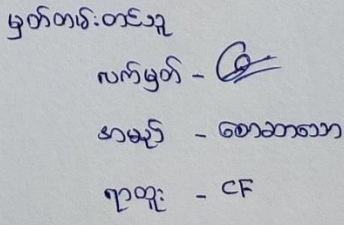 မှတ်တမ်းတင်သူ
လက်မှတ် -
အမည် - စောဆာဘာ
ရာထူး - CF